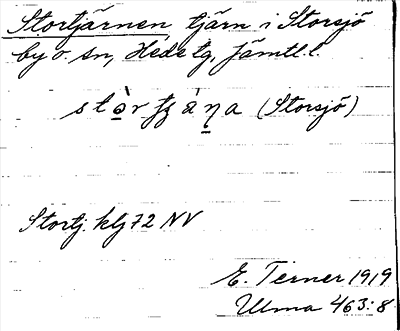 Stortjärnen, tjärn i Storsjö
by o. sn, Hede tg, Jämtl. l.
(Storsjö)
Stortj. klj 72 NV
E. Terner 1919
Ulma 463:8